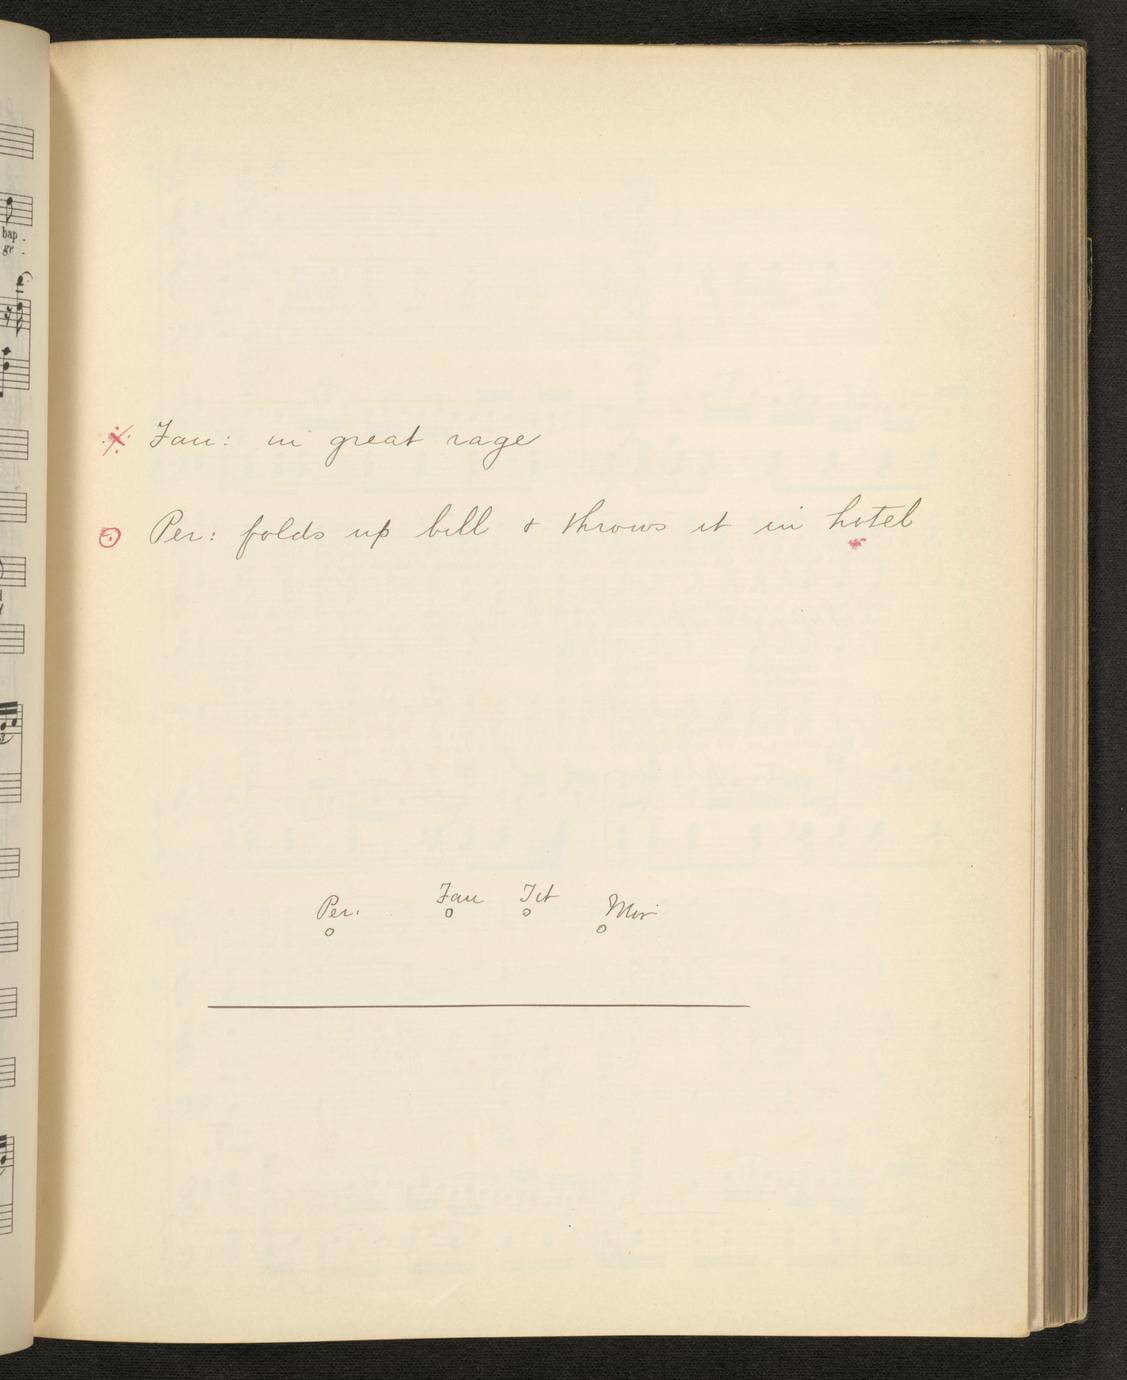 bap -
ge -
Fau: in great rage
Per: folds up bill & throws it in hotel
Per. Fau Tit Mir